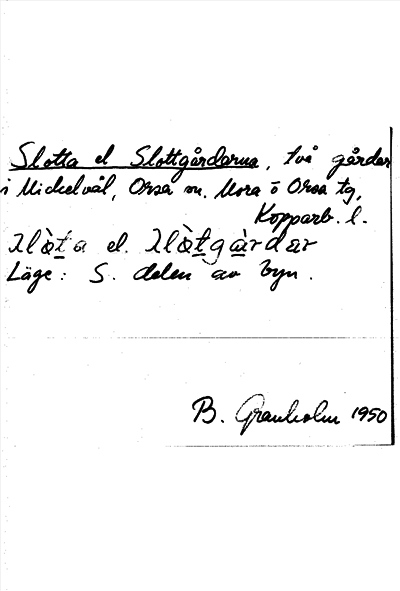 Slotta el Slottgårdarna, två gårdar
i Mickelvål, Orsa sn. Mora o Orsa tg,
Kopparb. l.
λlò̱ṯa el. λlò̱ṯgà̱rdar
Läge: S. delen av byn.
B. Granholm 1950